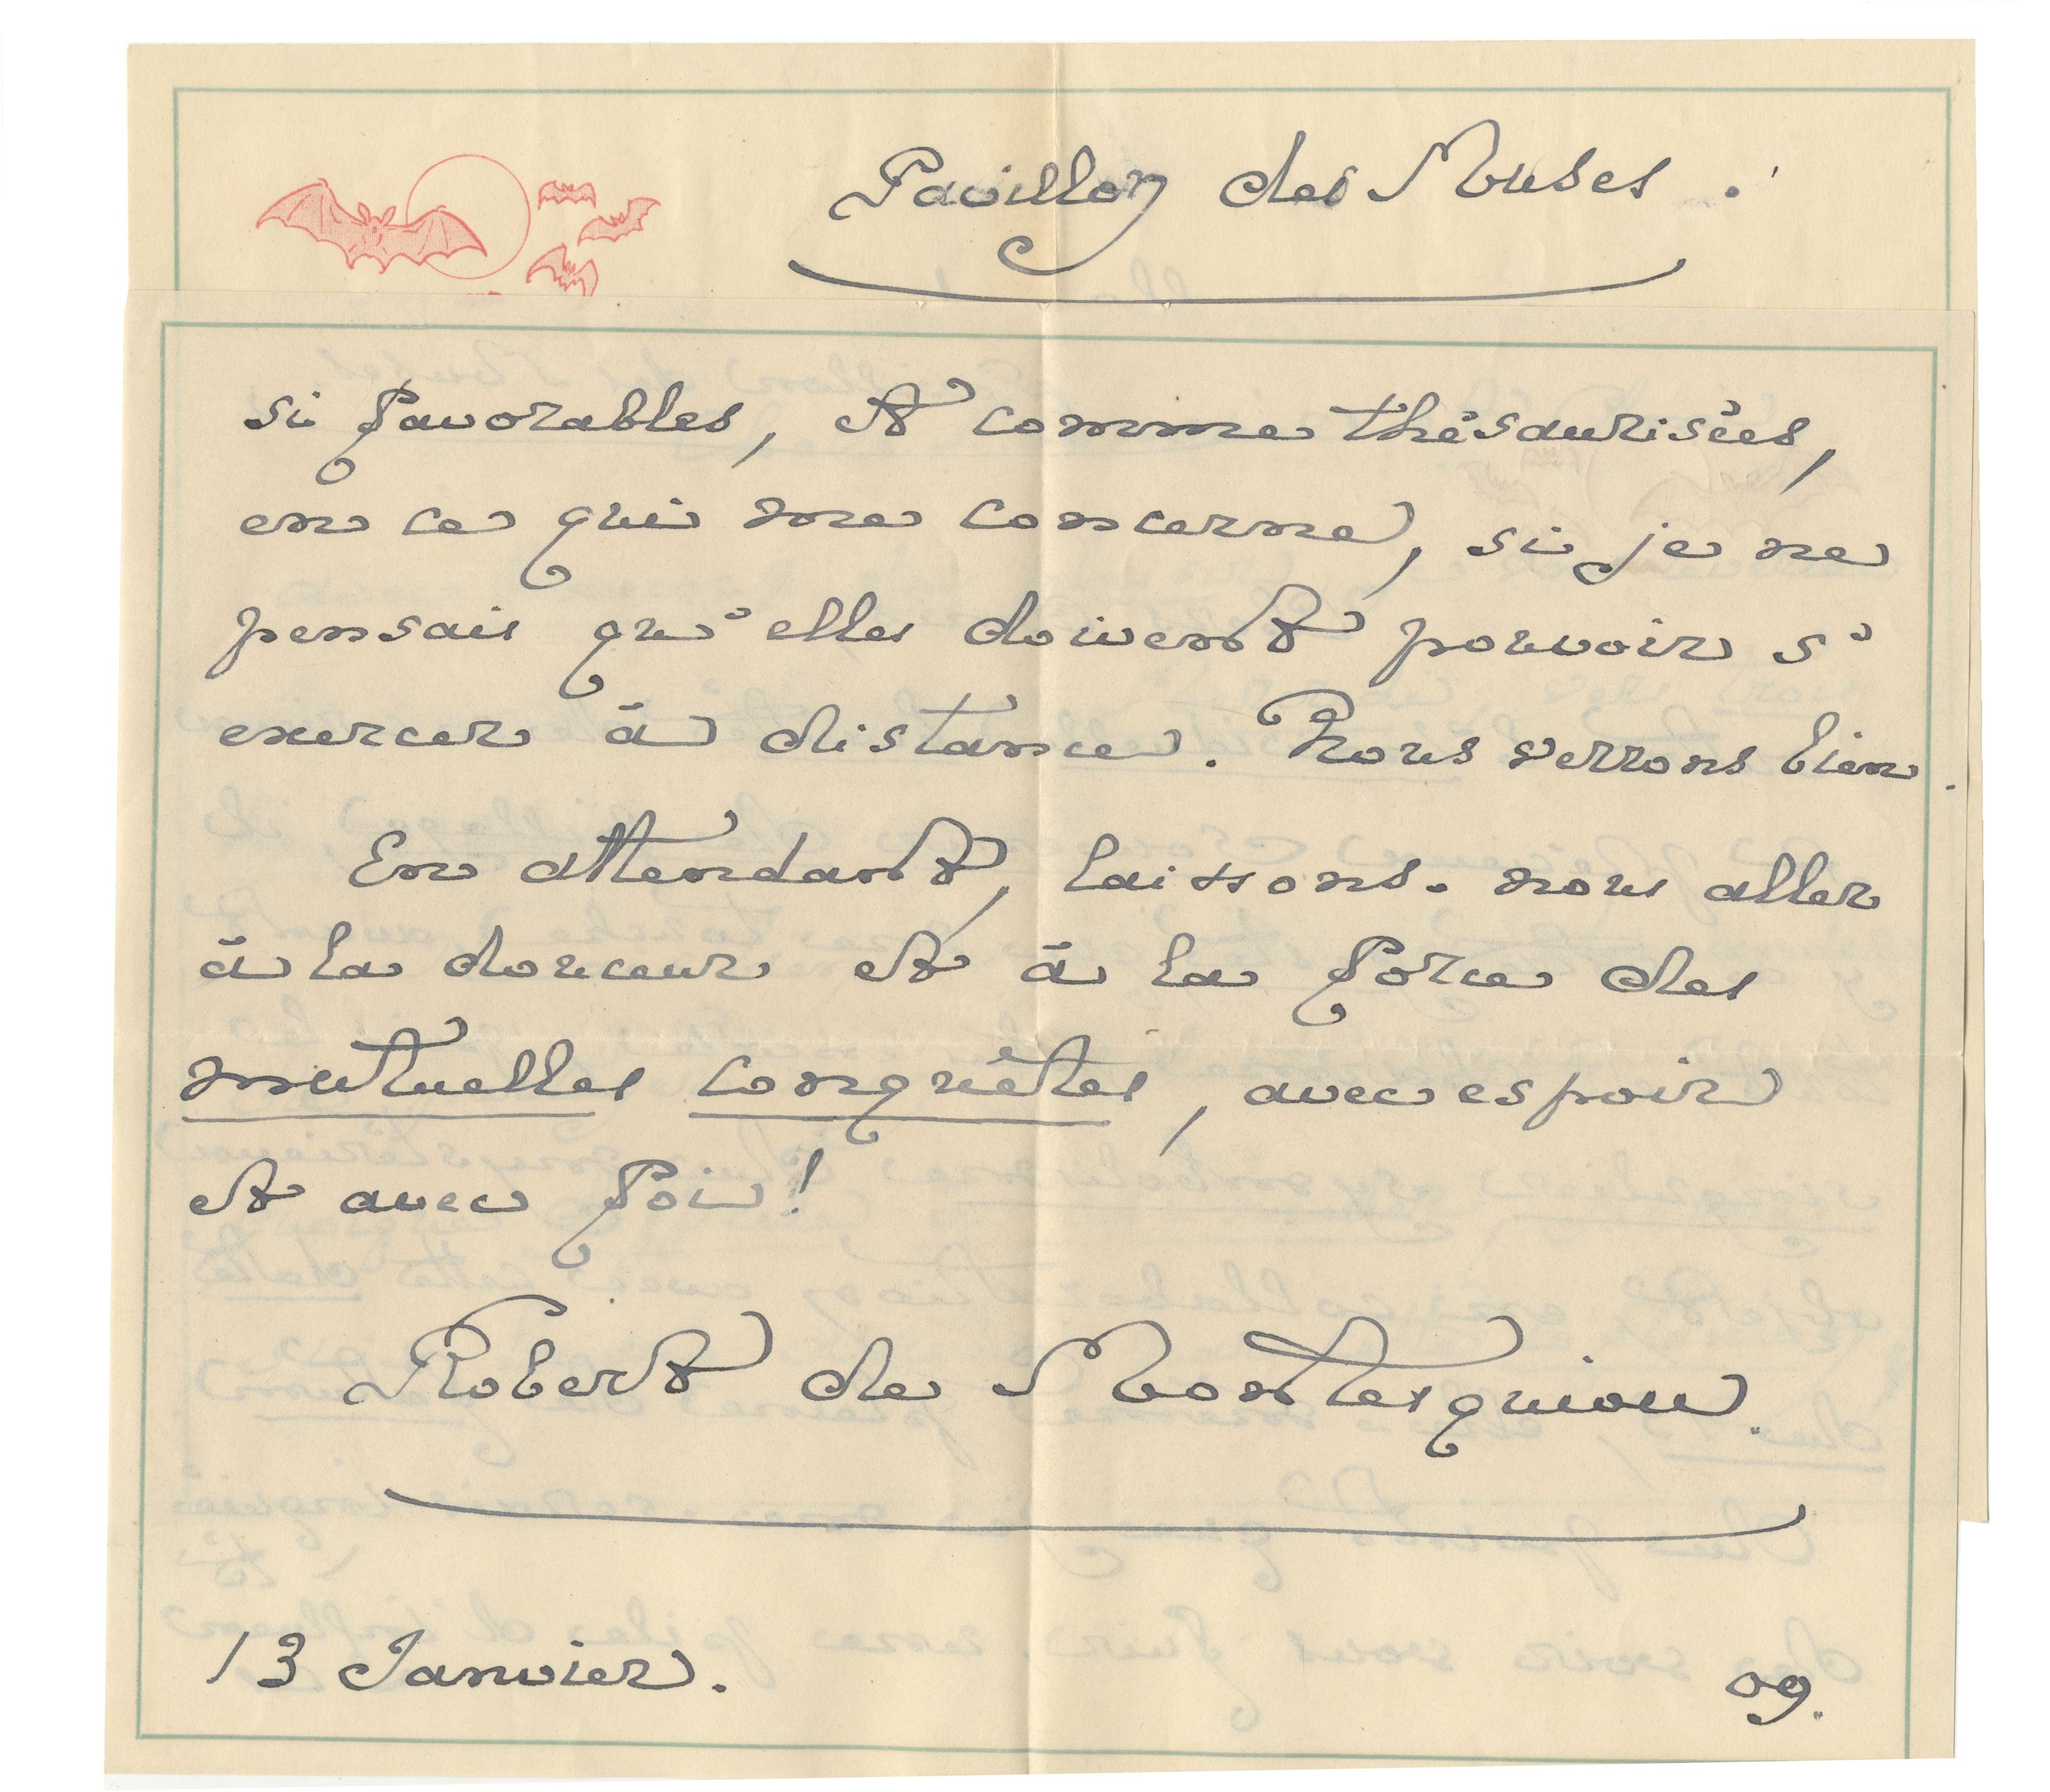 Pavillon des Muses.
si favorables, et comme thésaurisées,
en ce qui me concerne, si je ne
pensais qu'elles doivent pouvoir s'
exercer à distance. Nous verrons bien.
En attendant, laissons-nous aller
à la douceur et à la force des
mutuelles conquêtes, avec espoir
et avec foi!
Robert de Montesquiou.
13 Janvier. 09.